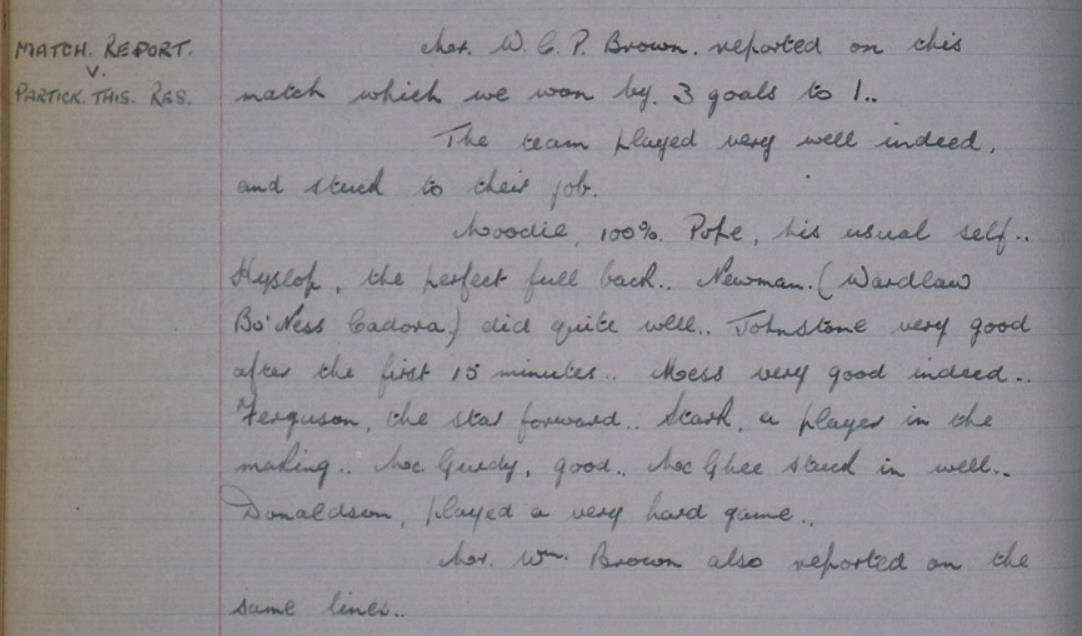 MATCH. REPORT.
v.
PARTICK. THIS. RES.
Mr. W. C. P. Brown. reported on this
match which we won by. 3 goals to 1..
The team played very well indeed,
and stuck to their job.
Moodie, 100%. Pope, his usual self..
Hyslop, the perfect full back.. Newman. (Wardlaw
Bo'Ness Cadora.) did quite well.. Johnstone very good
after the first 15 minutes.. Moess very good indeed..
Ferguson, the star forward.. Stark, a player in the
making.. Mc. Gurdy, good.. Mc Ghee stuck in well..
Donaldson, played a very hard game..
Mr. Wm. Brown also reported on the
same lines..